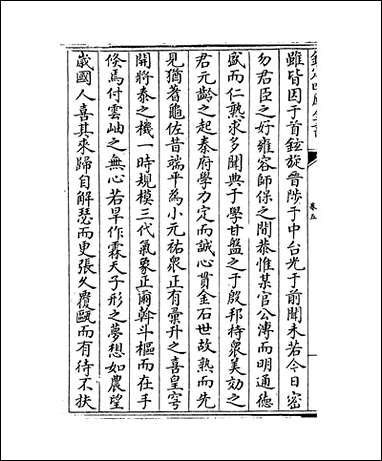 欽定四庫全書
卷五
雖皆因于首鉉旋晉陟于中台光于前聞未若今日密
勿君臣之好雍容師保之間恭惟某官公溥而明通德
盛而仁熟求多聞典于學甘盤之于殷邦持衆美効之
君元齡之起秦府學力定而誠心貫金石世故熟而先
見猶蓍龜佐昔端平為小元祐衆正有彚升之喜皇穹
開將泰之機一時規模三代氣象正爾斡斗樞而在手
倐馬付雲岫之無心若旱作霖天子形之夢想如農望
歲國人喜其來歸自解瑟而更張久覆甌而有待不扶